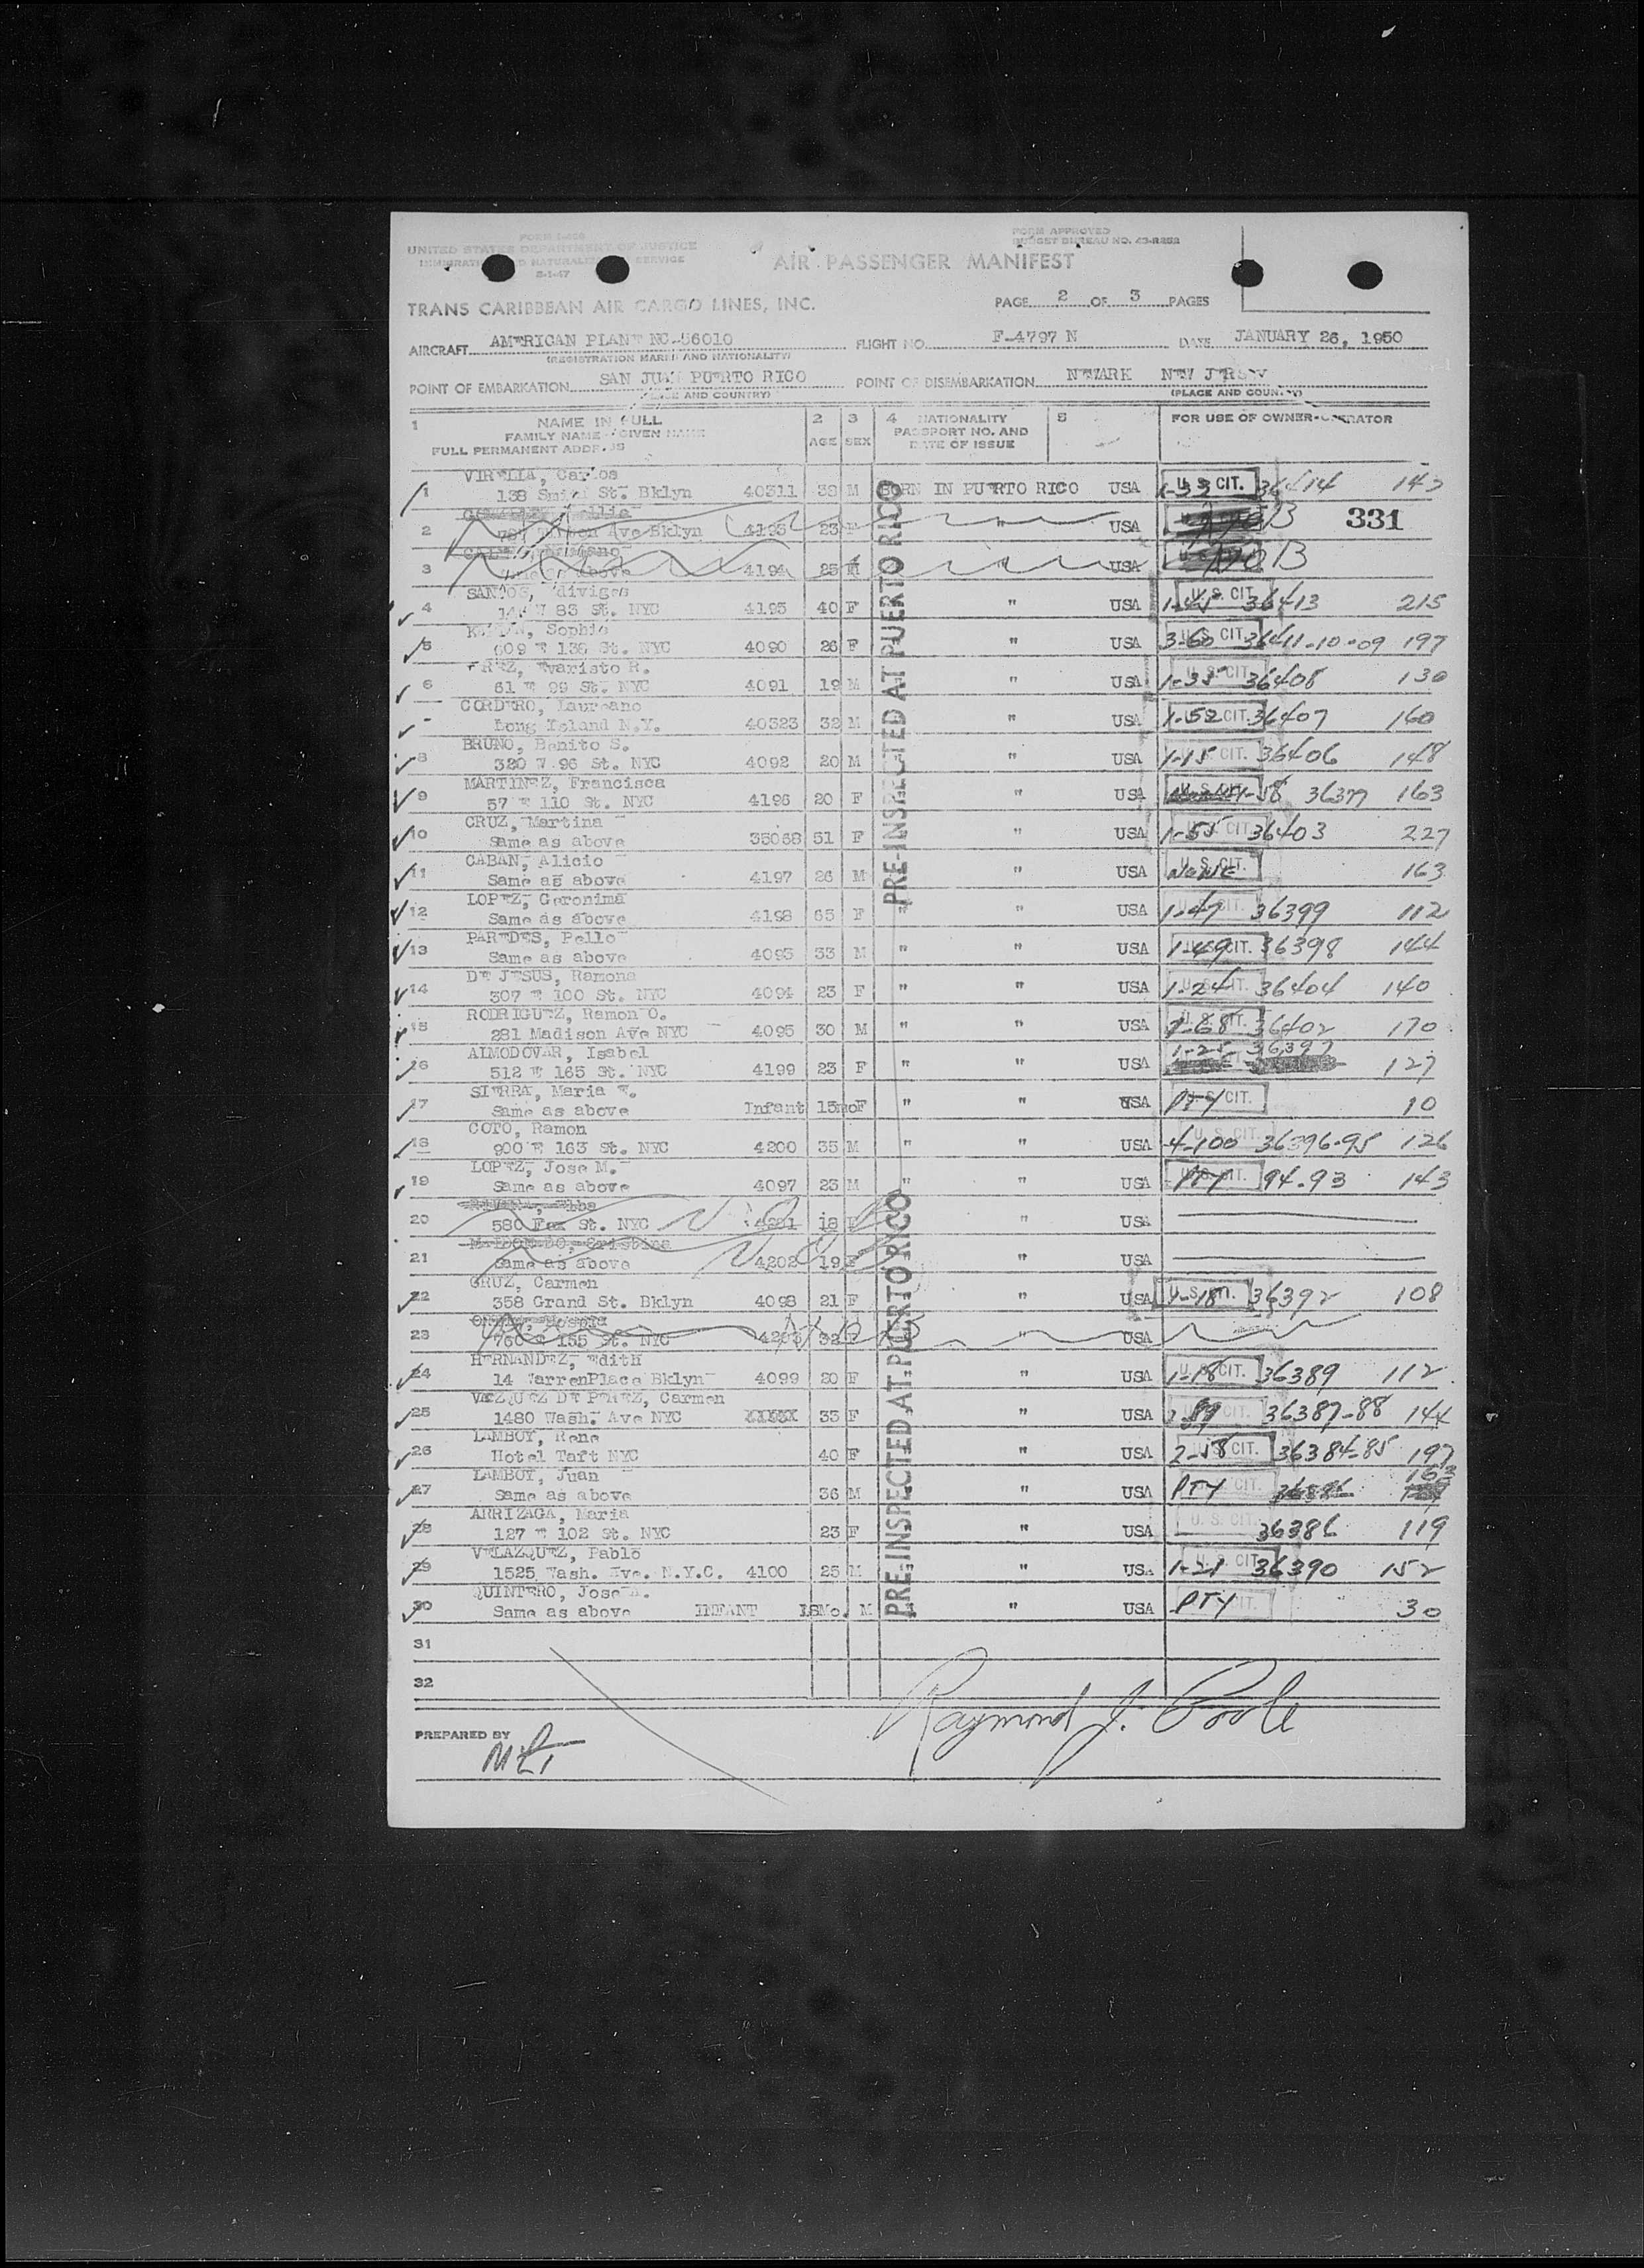 FORM I-466
UNITED STATES DEPARTMENT OF JUSTICE
IMMIGRATION AND NATURALIZATION SERVICE
8-1-47
FORM APPROVED
BUDGET BUREAU NO. 43-R252
AIR PASSENGER MANIFEST
TRANS CARIBBEAN AIR CARGO LINES, INC.
PAGE 2 OF 3 PAGES
AIRCRAFT AMERICAN PLANE NC-56010 FLIGHT NO. F-4797 N DATE JANUARY 26, 1950
(REGISTRATION MARKS AND NATIONALITY)
POINT OF EMBARKATION SAN JUAN PUERTO RICO POINT OF DISEMBARKATION NEWARK NEW JERSEY
(PLACE AND COUNTRY) (PLACE AND COUNTRY)
1 NAME IN FULL 2 3 4 NATIONALITY 5 FOR USE OF OWNER-OPERATOR
FAMILY NAME - GIVEN NAME AGE SEX PASSPORT NO. AND
FULL PERMANENT ADDRESS DATE OF ISSUE
VIRELLA, Carlos
1 138 Smith St. Bklyn 40311 38 M BORN IN PUERTO RICO USA U. S. CIT. 36414 143
331
2 Ave Bklyn 4193 23 F " USA
3 Same as above 4194 25 M USA
SANTOS,
4 W 83 St. NYC 4195 40 F " USA U. S. CIT. 36413 215
Sophie
5 609 E 138 St. NYC 4090 26 F " USA 3-60 U. S. CIT. 36411-10-09 197
Evaristo R.
6 61 E 99 St. NYC 4091 19 M " USA 1-35 U. S. CIT. 36408 130
CORDERO, Laureano
Long Island N.Y. 40323 32 M " USA 1-52 CIT. 36407 160
BRUNO, Benito S.
8 320 W 96 St. NYC 4092 20 M " USA 1-15 U. S. CIT. 36406 148
MARTINEZ, Francisca
9 57 E 110 St. NYC 4196 20 F " USA 163
CRUZ, Martina
10 Same as above 35068 51 F " USA 1-55 U. S. CIT. 36403 227
CABAN, Alicio
11 Same as above 4197 26 M " USA U. S. CIT. NONE 163
LOPEZ, Geronima
12 Same as above 4198 65 F " USA 1-47 U. S. CIT. 36399 112
PAREDES, Pello
13 Same as above 4093 33 M " " USA 1-49 U. S. CIT. 36398 144
DE JESUS, Ramona
14 307 E 100 St. NYC 4094 23 F " " USA 1-24 U. S. CIT. 36404 140
RODRIGUEZ, Ramon O.
15 281 Madison Ave NYC 4095 30 M " " USA 1-68 U. S. CIT. 36402 170
ALMODOVAR, Isabel
16 512 E 165 St. NYC 4199 23 F " " USA 1-25 36397 127
SIERRA, Maria E.
17 Same as above Infant 15mo F " " USA PTY U. S. CIT. 10
COTO, Ramon
18 900 E 163 St. NYC 4200 35 M " " USA 4-100 U. S. CIT. 36396-95 126
LOPEZ, Jose M.
19 Same as above 4097 23 M " " USA PTY U. S. CIT. 94-93 143
20 580 Fox St. NYC 4201 18 F " USA
MALDONADO, Cristina
21 Same as above 4202 19 F " USA
CRUZ, Carmen
22 358 Grand St. Bklyn 4098 21 F " USA 1-18 U. S. CIT. 36392 108
23 760 E 155 St. NYC 4203 32 F " USA
HERNANDEZ, Edith
24 14 WarrenPlace Bklyn 4099 20 F " USA 1-18 U. S. CIT. 36389 112
VAZQUEZ DE PEREZ, Carmen
25 1480 Wash. Ave NYC 33 F " USA U. S. CIT. 36387-88 144
LAMBOY, Rene
26 Hotel Taft NYC 40 F " USA 2-58 U. S. CIT. 36384-85 197
LAMBOY, Juan
27 Same as above 36 M " USA PTY U. S. CIT. 163
ARRIZAGA, Maria
28 127 E 102 St. NYC 23 F " USA U. S. CIT. 36386 119
VELAZQUEZ, Pablo
29 1525 Wash. Ave. N.Y.C. 4100 25 M " USA 1-21 U. S. CIT. 36390 152
QUINTERO, Jose
30 Same as above INFANT 18Mo. M " USA PTY U. S. CIT. 30
31
32
PRE-INSPECTED AT PUERTO RICO
PRE-INSPECTED AT PUERTO RICO
PREPARED BY
Raymond J. Poole